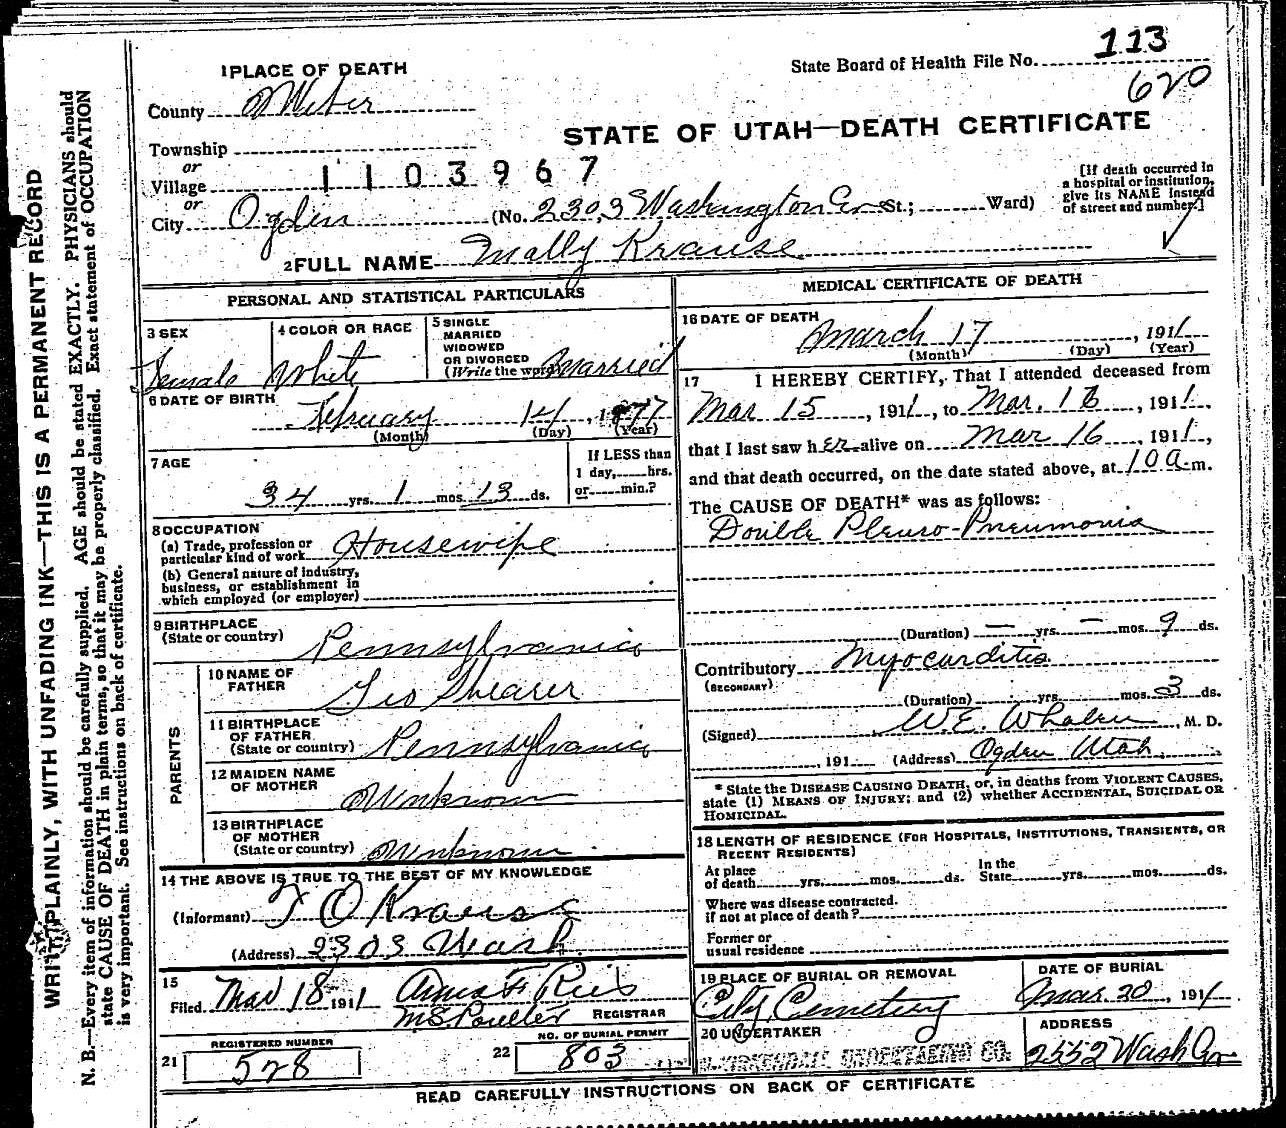 WRITE PLAINLY, WITH UNFADING INK—THIS IS A PERMANENT RECORD
N. B.—Every item of information should be carefully supplied. AGE should be stated EXACTLY. PHYSICIANS should
state CAUSE OF DEATH in plain terms, so that it may be properly classified. Exact statement of OCCUPATION
is very important. See instructions on back of certificate.
1 PLACE OF DEATH
State Board of Health File No. 113
620
County Weber
STATE OF UTAH—DEATH CERTIFICATE
Township
or
Village 1103967
or
City Ogden (No. 2303 Washington Ave St.; Ward)
[If death occurred in
a hospital or institution,
give its NAME instead
of street and number.]
2 FULL NAME Mally Krause
PERSONAL AND STATISTICAL PARTICULARS
3 SEX Female
4 COLOR OR RACE White
5 SINGLE
MARRIED
WIDOWED
OR DIVORCED
(Write the word) Married
6 DATE OF BIRTH February 14, 1877
(Month) (Day) (Year)
7 AGE 34 yrs. 1 mos. 13 ds.
If LESS than
1 day, hrs.
or min.?
8 OCCUPATION
(a) Trade, profession or
particular kind of work Housewife
(b) General nature of industry,
business, or establishment in
which employed (or employer)
9 BIRTHPLACE
(State or country) Pennsylvania
PARENTS
10 NAME OF
FATHER Geo Shearer
11 BIRTHPLACE
OF FATHER
(State or country) Pennsylvania
12 MAIDEN NAME
OF MOTHER Unknown
13 BIRTHPLACE
OF MOTHER
(State or country) Unknown
14 THE ABOVE IS TRUE TO THE BEST OF MY KNOWLEDGE
(Informant) F O Krause
(Address) 2303 Wash.
15
Filed Mar 18 1911
M S Poulter REGISTRAR
REGISTERED NUMBER
21 528
NO. OF BURIAL PERMIT
22 803
MEDICAL CERTIFICATE OF DEATH
16 DATE OF DEATH March 17, 1911
(Month) (Day) (Year)
17 I HEREBY CERTIFY, That I attended deceased from
Mar 15, 1911, to Mar. 16, 1911,
that I last saw her alive on Mar 16, 1911,
and that death occurred, on the date stated above, at 10 a m.
The CAUSE OF DEATH* was as follows:
Double Pleuro-Pneumonia
(Duration) — yrs. — mos. 9 ds.
Contributory Myocarditis
(SECONDARY)
(Duration) yrs. mos. 3 ds.
(Signed) W.E. Whalen, M. D.
, 191 (Address) Ogden Utah
* State the DISEASE CAUSING DEATH, or, in deaths from VIOLENT CAUSES,
state (1) MEANS OF INJURY; and (2) whether ACCIDENTAL, SUICIDAL OR
HOMICIDAL.
18 LENGTH OF RESIDENCE (FOR HOSPITALS, INSTITUTIONS, TRANSIENTS, OR
RECENT RESIDENTS)
At place
of death yrs. mos. ds.
In the
State yrs. mos. ds.
Where was disease contracted.
if not at place of death?
Former or
usual residence
19 PLACE OF BURIAL OR REMOVAL
City Cemetery
DATE OF BURIAL
Mar. 20, 1911
20 UNDERTAKER
UNDERTAKING CO.
ADDRESS
2552 Wash Av
READ CAREFULLY INSTRUCTIONS ON BACK OF CERTIFICATE